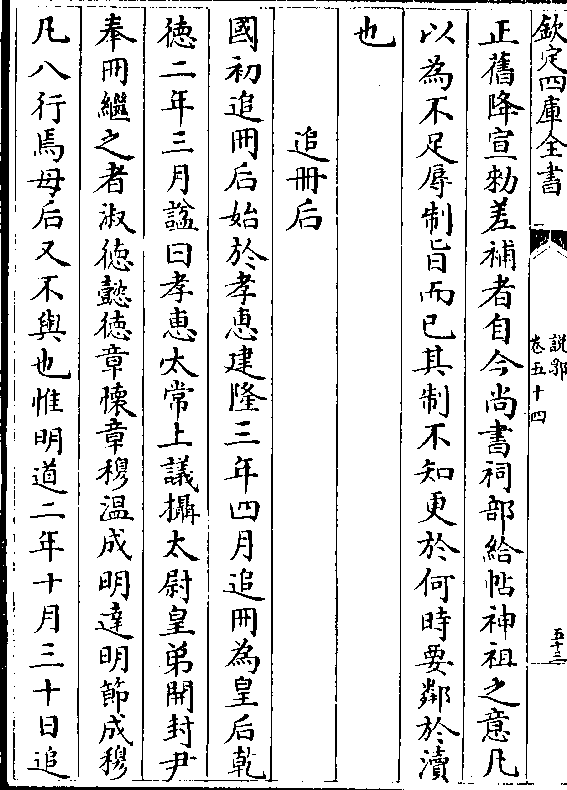 欽定四庫全書
說郛
卷五十四
五十三
正舊降宣勅差補者自今尚書祠部給帖神祖之意凡
以為不足辱制旨而已其制不知更於何時要鄰於瀆
也
追冊后
國初追冊后始於孝惠建隆三年四月追冊為皇后乾
徳二年三月諡曰孝惠太常上議攝太尉皇弟開封尹
奉冊繼之者淑徳懿徳章懷章穆温成明達明節成穆
凡八行焉母后又不與也惟明道二年十月三十日追